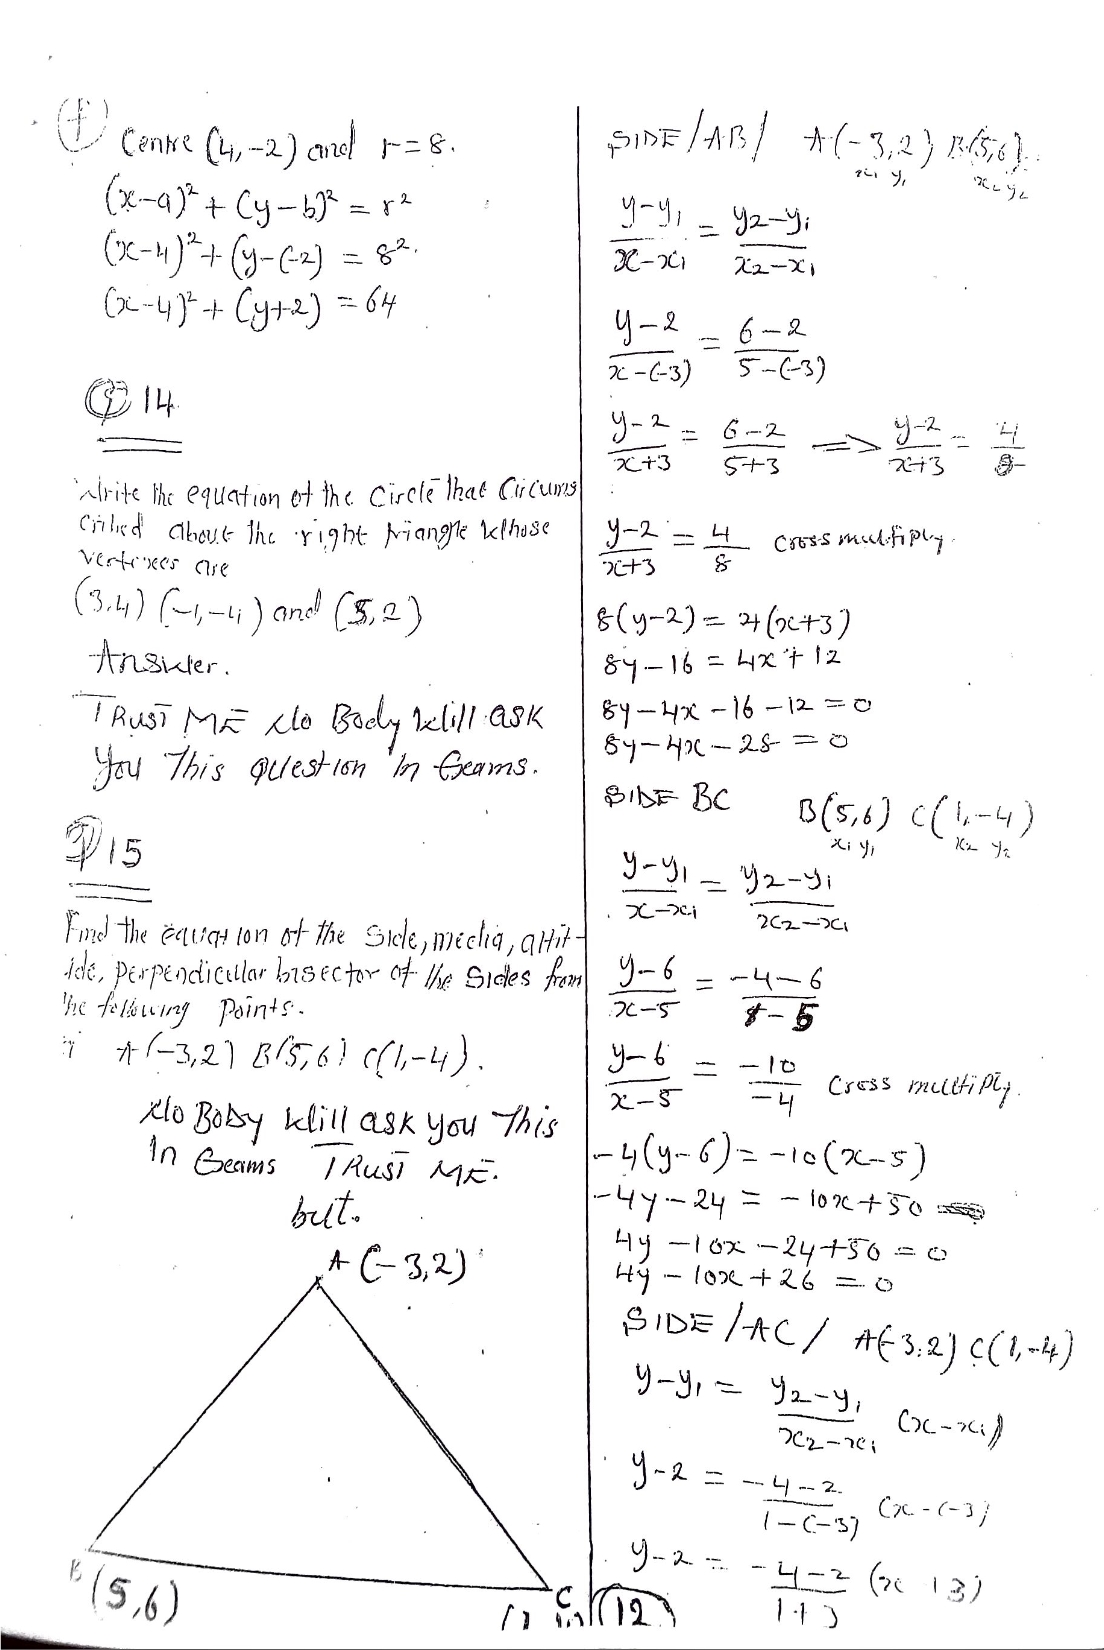 (f) Centre (4,-2) and r=8.
(x-a)² + (y-b)² = r²
(x-4)² + (y-(-2) = 8².
(x-4)² + (y+2) = 64
Q 14
Write the equation of the Circle that Circums
cribed about the right triangle Whose
vertexes are
(3,4) (-1,-4) and (5,2)
Answer.
TRUST ME No Body Will ask
You This question in Exams.
15
Find the equation of the Side, media, altit-
ide, perpendicular bisector of the Sides from
the following Points.
A(-3,2) B(5,6) C(1,-4).
No BoDy Will ask you This
In Exams TRUST ME.
but.
A (-3,2)
B (5,6)
C
SIDE /AB/ A(-3,2) B(5,6).
x₁ y₁ x₂ y₂
y-y₁/x-x₁ = y₂-y₁/x₂-x₁
y-2/x-(-3) = 6-2/5-(-3)
y-2/x+3 = 6-2/5+3 => y-2/x+3 = 4/8
y-2/x+3 = 4/8 Cross multiply.
8(y-2) = 4(x+3)
8y-16 = 4x+12
8y-4x-16-12=0
8y-4x-28=0
SIDE BC B(5,6) C(1,-4)
x₁ y₁ x₂ y₂
y-y₁/x-x₁ = y₂-y₁/x₂-x₁
y-6/x-5 = -4-6/1-5
y-6/x-5 = -10/-4 Cross multiply.
-4(y-6) = -10(x-5)
-4y-24 = -10x+50
4y-10x-24+50=0
4y-10x+26=0
SIDE /AC/ A(-3,2) C(1,-4)
y-y₁ = y₂-y₁/x₂-x₁ (x-x₁)
y-2 = -4-2/1-(-3) (x-(-3)
y-2 = -4-2/1+3 (x+3)
12